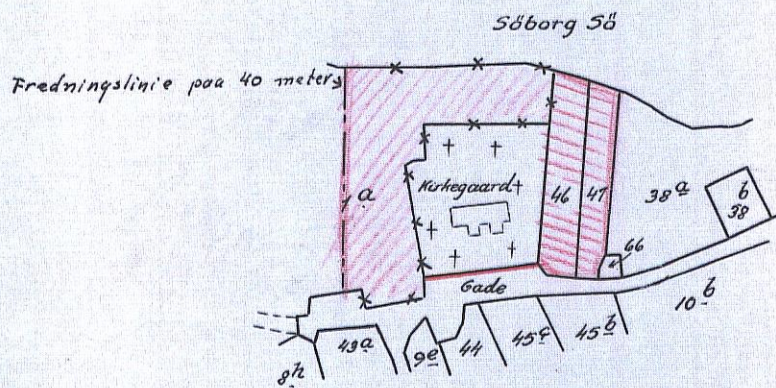 Söborg Sö
Fredningslinie paa 40 meter
1 a
Kirkegaard
46
47
38 a
b
38
66
Gade
10 b
43 a
9 e
44
45 c
45 b
8 h